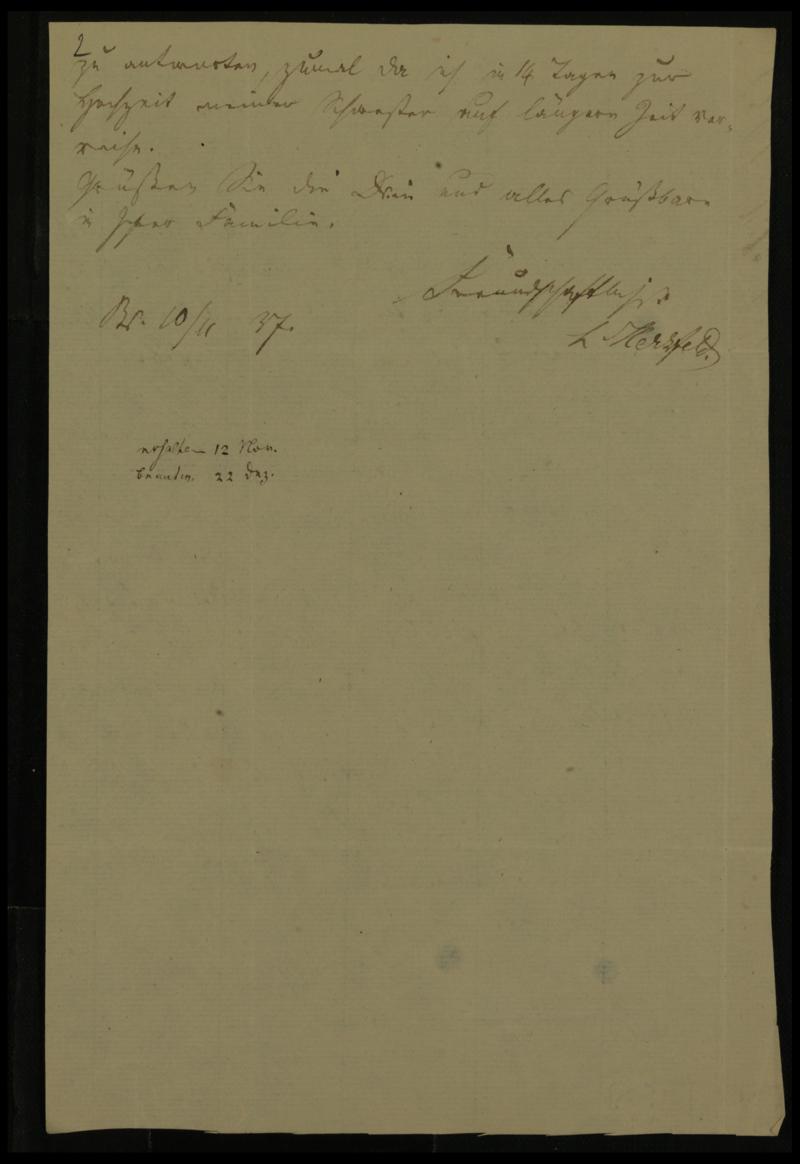 2
zu antworten, zumal da ich in 14 Tagen zur
Hochzeit meiner Schwester auf längere Zeit ver-
reise.
Grüßen Sie die Drei und alles Grüßbare
in Ihrer Familie.
Freundschaftlichst
L Herzfeld.
Br. 10/11 37.
erhalten 12 Nov.
beantw. 22 Dez.